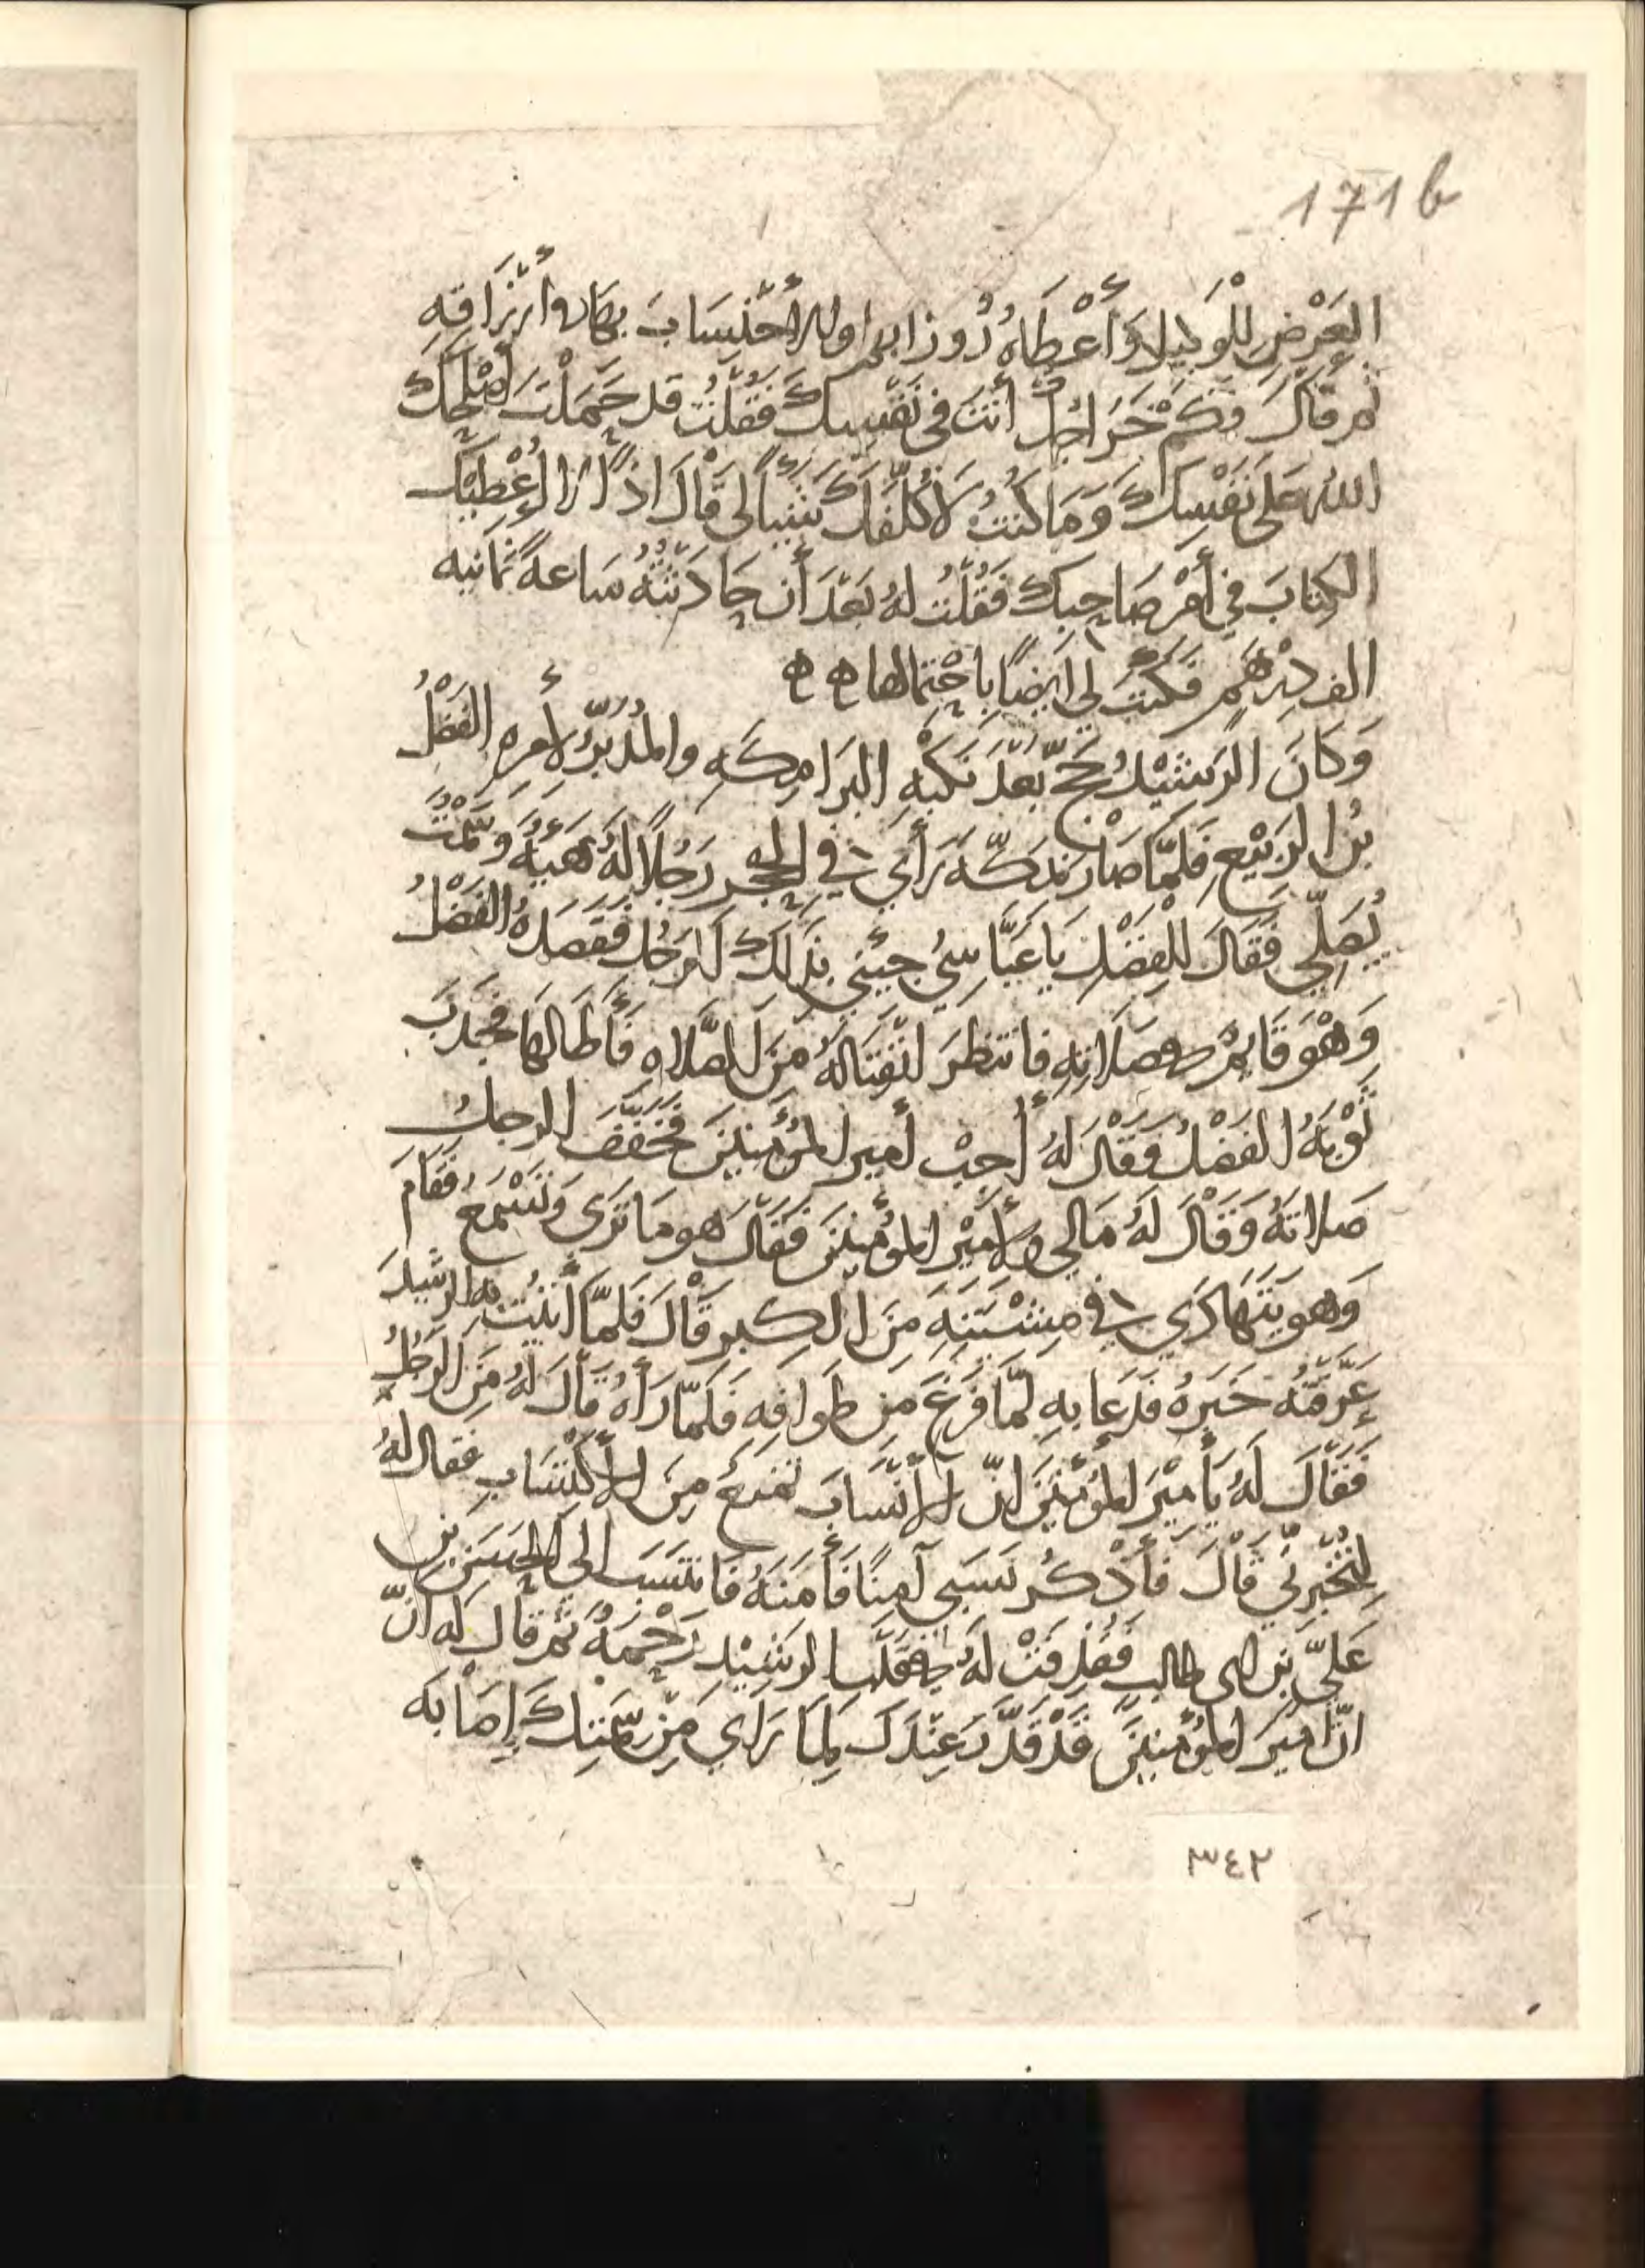 171b
العَرْضِ لِلْوَكِيلِ وَأَعْطَاهُ الأحْتِسَابَ بها وأرْزَاقِهِ
ثم قَالَ وَكَمْ خَرَاجُكَ أنتَ في نَفْسِكَ فَقُلْتُ قد حَمَلْتَ أصْلَحَكَ
اللهُ عَلَى نَفْسِكَ وَمَا كُنْتُ لأُكَلِّفَكَ شَيْئاً لي قَالَ اذاً لا أُعْطِيْكَ
الكِتابَ في أَمْرِ صَاحِبِكَ فَقُلْتُ لهُ بَعْدَ أن حَادَثْتُهُ سَاعةً ثمانيه
الف دِرْهَمٍ فَكَتَبَ لي أيضاً باحْتمالها ه ه
وَكَانَ الرَشيْدُ حَجَّ بَعْدَ نَكْبَةِ البَرَامِكَهِ والمُدَبِّرُ لأَمرِهِ الفَضْلُ
بنُ الرَبيْعِ فَلَمَّا صَارَ بمَكّهَ رَأَى في الحِجْرِ رَجُلاً لَهُ هَيْئةٌ وَسَمْتٌ
يُصَلِّي فَقَالَ للفَضْلِ يَا عَبَّاسِيُّ جِئْنِي بذَلكَ الرَجُلِ فَقَصَدَهُ الفَضْلُ
وَهْوَ قَائمٌ في صَلاتِهِ فانتظَرَ انْفتَالَهُ مِنَ الصَّلاهِ فَأَطَالهَا فجَذَبَ
ثَوْبَهُ الفَضْلُ وَقَالَ لهُ أَجِبْ أميرَ المُؤْمِنِينَ فَخَفَّفَ الرجلُ
صَلاتَهُ وَقَالَ لَهُ مَالي ولأَمِيْرِ المُؤْمِنِيْنَ فَقَالَ هو مَا تَرَى وَتَسْمَعُ فَقَامَ
وَهو يَتَهَادَى في مِشْيَتِهِ مِنَ الكِبَرِ قَالَ فَلَمَّا أَتَيْتُ بِهِ الرشيدَ
عَرَّفْتُهُ خَبَرَهُ فَدَعَا بِهِ لمّا فَرَغَ مِن طَوَافِهِ فَلَمَّا رَأَهُ قَالَ لَهُ مَنِ الرَجُلُ
فَقَالَ لَهُ يَأَمِيْرَ المُؤْمِنِيْنَ انّ الأَنْسَابَ تمنَعُ مِنَ الأكْتِسَابِ فقال لهُ
لِتُخْبِرنّي قَالَ فَأَذْكُر نَسَبي آمِناً فَأَمَنَهُ فَانتَسَبَ الى الحَسَنِ بنِ
عَليِّ بنِ ابى طالبٍ لَهُ الرشِيْدِ رَحْمَةً ثم قالَ لَه انّ
انّ امِيرَ المُؤْمِنِيْنَ قَدْ قَدَّرَ عِنْدَكَ لِمَا رَأى مِن سَمْتِكَ إصَابَه
٣٤٢